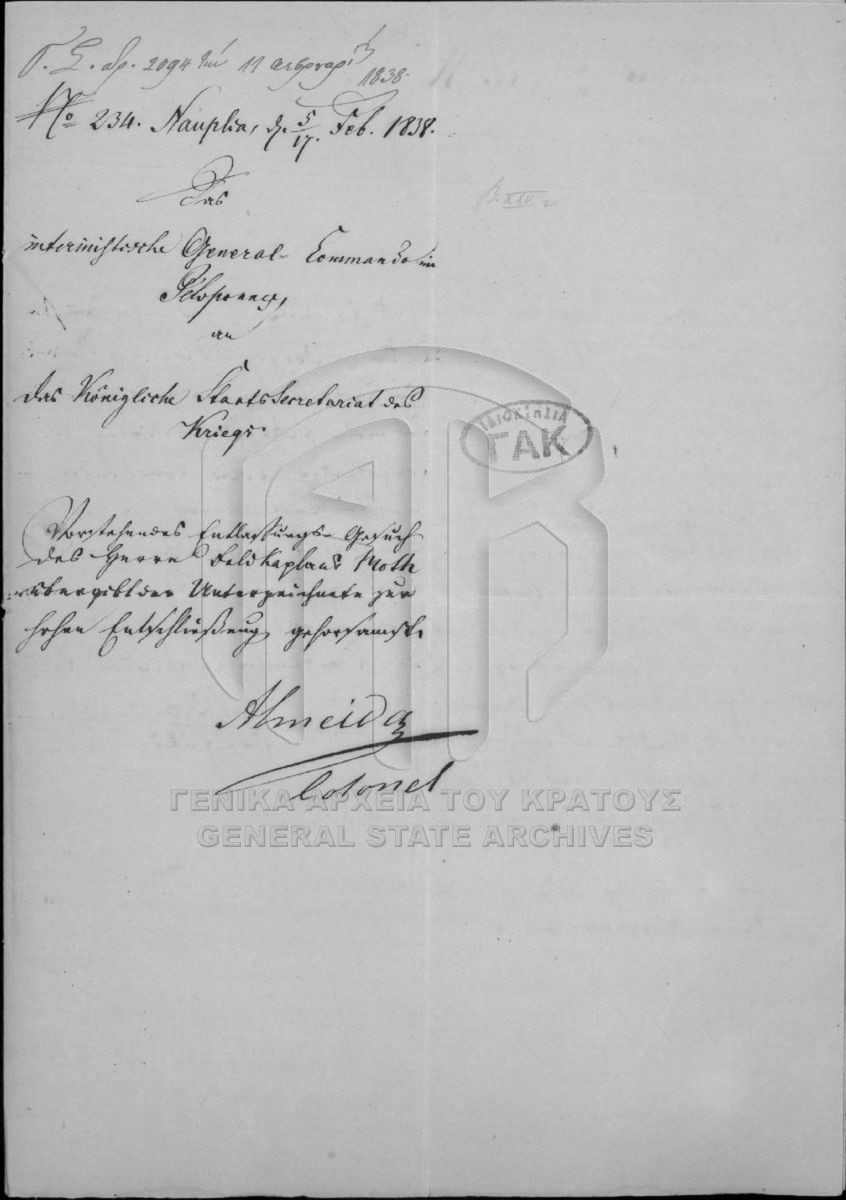 αρ. 2094 την 11 Φεβρουαρίου
1838.
No 234. Nauplia, d. 5/17. Feb. 1838.
Das
interimistische General-Commando im
Peloponnes,
an
das Königliche StaatsSecretariat des
Kriegs
Vorstehendes Entlassungs-Gesuch
des Herrn Feldkaplans Moth
übergibt der Unterzeichnete zur
hohen Entschließung gehorsamst.
Almeida
Colonel
ΙΔΙΟΚΤΗΣΙΑ
ΓΑΚ
ΓΕΝΙΚΑ ΑΡΧΕΙΑ ΤΟΥ ΚΡΑΤΟΥΣ
GENERAL STATE ARCHIVES